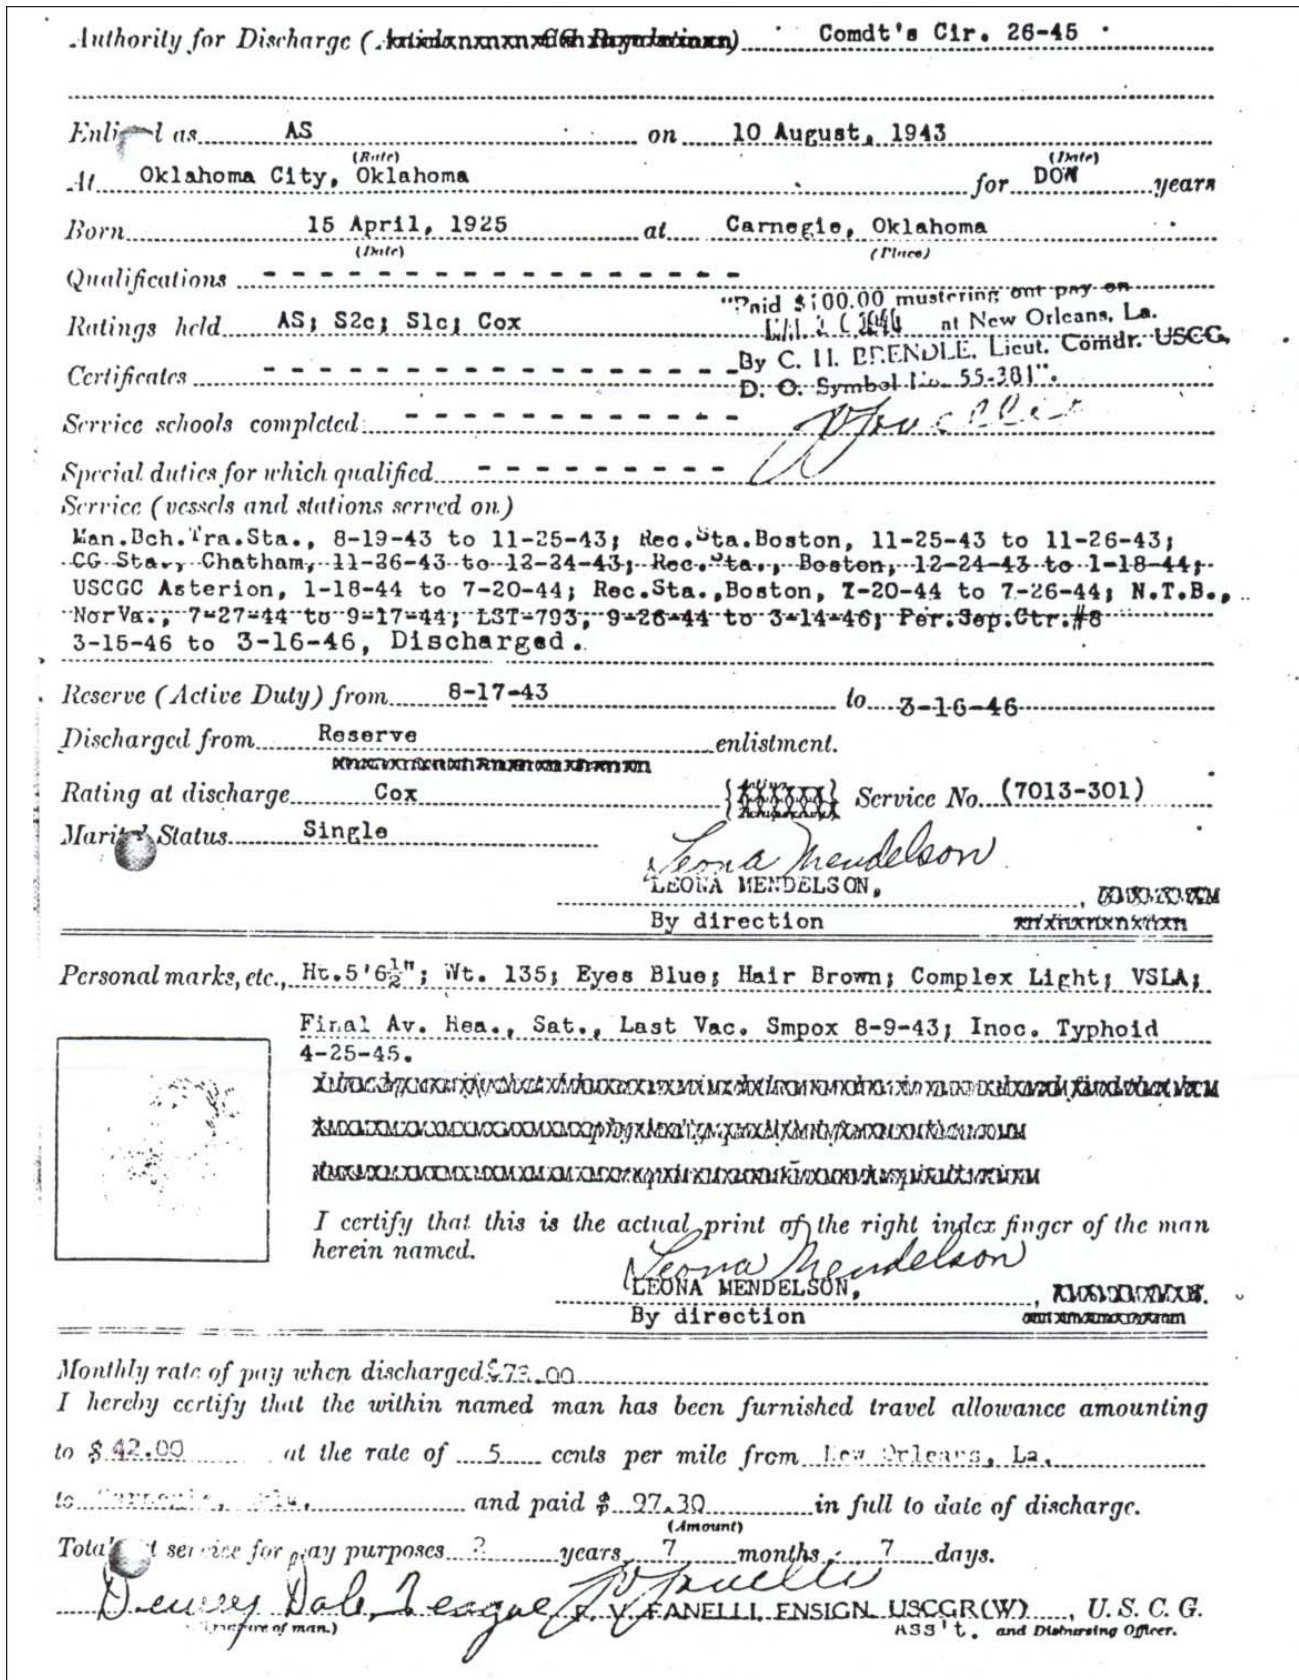 Authority for Discharge ( ) Comdt's Cir. 26-45
Enlisted as AS on 10 August, 1943
(Rate) (Date)
At Oklahoma City, Oklahoma for DOW years
Born 15 April, 1925 at Carnegie, Oklahoma
(Date) (Place)
Qualifications - - - - - - - - - - - - - - - - -
"Paid $100.00 mustering out pay on
Ratings held AS; S2c; S1c; Cox at New Orleans, La.
By C. H. BRENDLE, Lieut. Comdr. USCG,
Certificates - - - - - - - - - - - - - - - - -
D. O. Symbol No. 55-381".
Service schools completed - - - - - - - - - - - -
Special duties for which qualified - - - - - - - - -
Service (vessels and stations served on)
Man.Bch.Tra.Sta., 8-19-43 to 11-25-43; Rec.Sta.Boston, 11-25-43 to 11-26-43;
CG Sta., Chatham, 11-26-43 to 12-24-43; Rec.Sta., Boston, 12-24-43 to 1-18-44;
USCGC Asterion, 1-18-44 to 7-20-44; Rec.Sta.,Boston, 7-20-44 to 7-26-44; N.T.B.,
NorVa., 7-27-44 to 9-17-44; LST-793, 9-26-44 to 3-14-46; Per.Sep.Ctr.#8
3-15-46 to 3-16-46, Discharged.
Reserve (Active Duty) from 8-17-43 to 3-16-46
Discharged from Reserve enlistment.
Rating at discharge Cox Service No. (7013-301)
Marital Status Single
Leona Mendelson
LEONA MENDELSON,
By direction
Personal marks, etc., Ht.5'6½"; Wt. 135; Eyes Blue; Hair Brown; Complex Light; VSLA;
Final Av. Hea., Sat., Last Vac. Smpox 8-9-43; Inoc. Typhoid
4-25-45.
I certify that this is the actual print of the right index finger of the man
herein named.
Leona Mendelson
LEONA MENDELSON,
By direction
Monthly rate of pay when discharged
I hereby certify that the within named man has been furnished travel allowance amounting
to $ 42.00 at the rate of 5 cents per mile from New Orleans, La.
to Carnegie, and paid $ 97.30 in full to date of discharge.
(Amount)
Total net service for pay purposes years 7 months 7 days.
Dewey Dale Teague F. V. FANELLI ENSIGN USCGR(W), U. S. C. G.
(Signature of man.) ASS't. and Disbursing Officer.